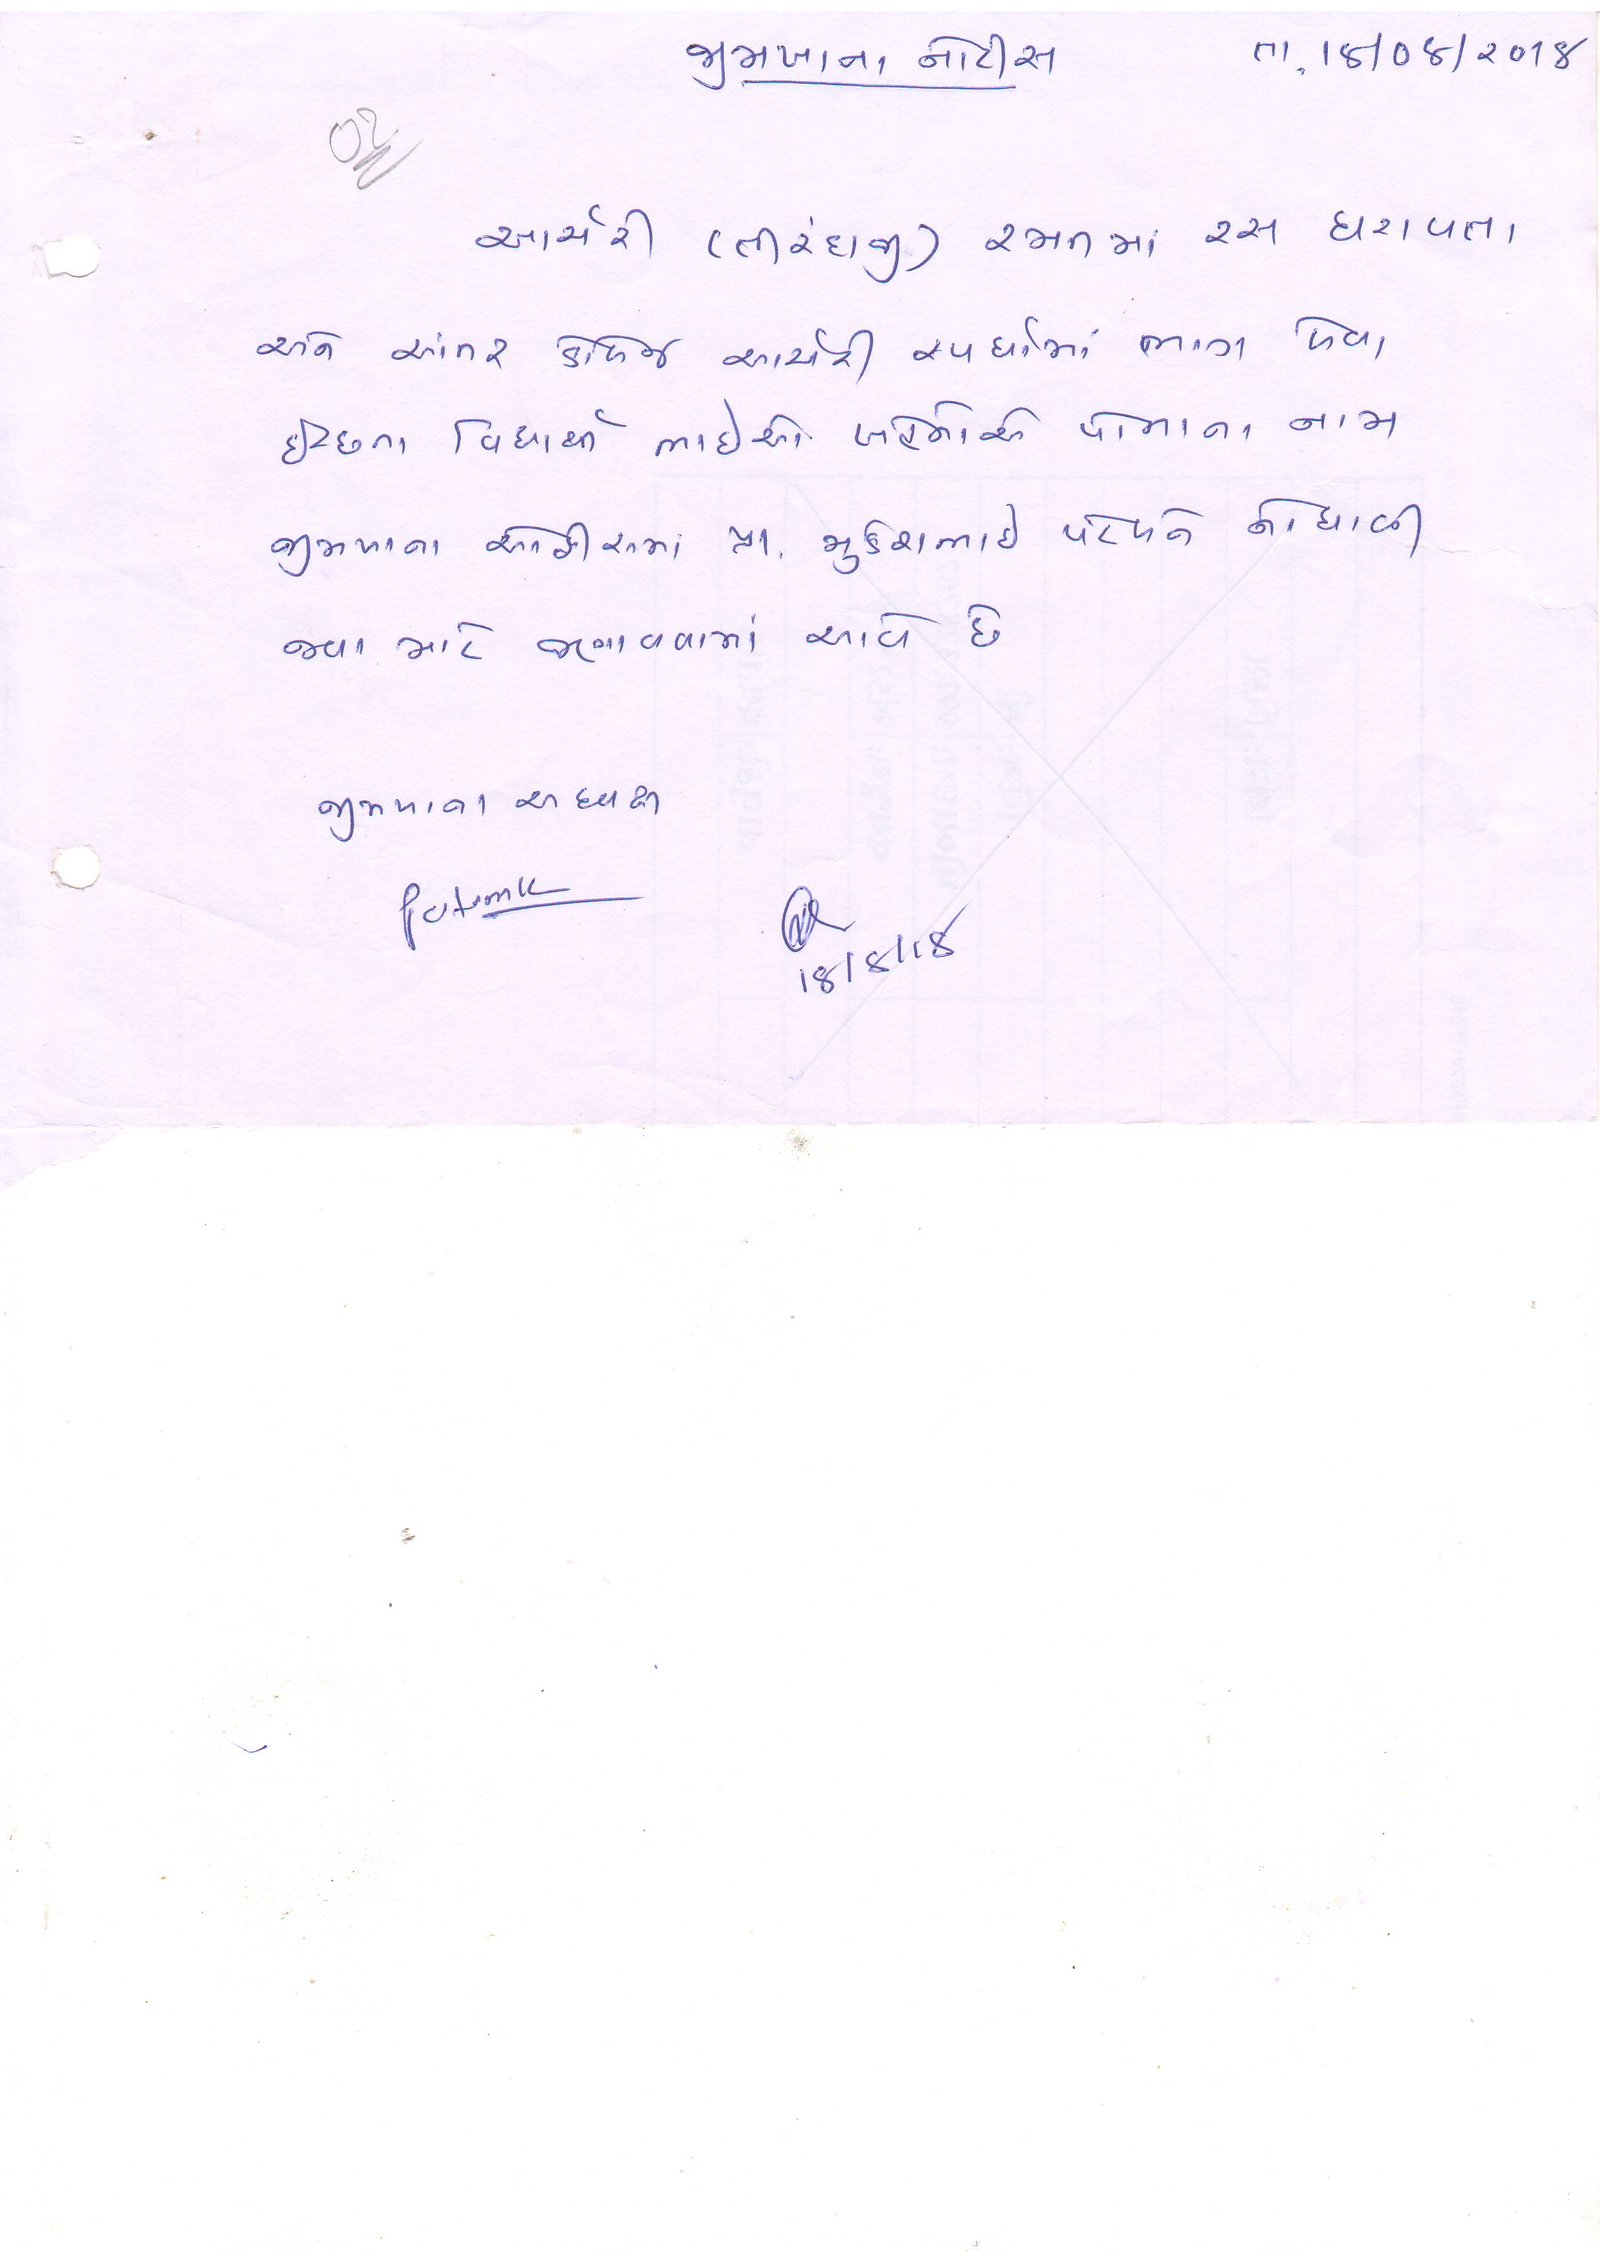 જીમખાના નોટીસ તા. ૧૪/૦૪/૨૦૧૪
૦૨
આર્ચરી (તીરંદાજી) રમતમાં રસ ધરાવતા
અને આંતર કોલેજ આર્ચરી સ્પર્ધામાં ભાગ લેવા
ઈચ્છતા વિદ્યાર્થી ભાઈઓ બહેનોએ પોતાના નામ
જીમખાના ઓફીસમાં પ્રા. મુકેશભાઈ પટેલને નોંધાવી
જવા માટે જણાવવામાં આવે છે
જીમખાના અધ્યક્ષ
Patelmk
૧૪/૪/૧૪